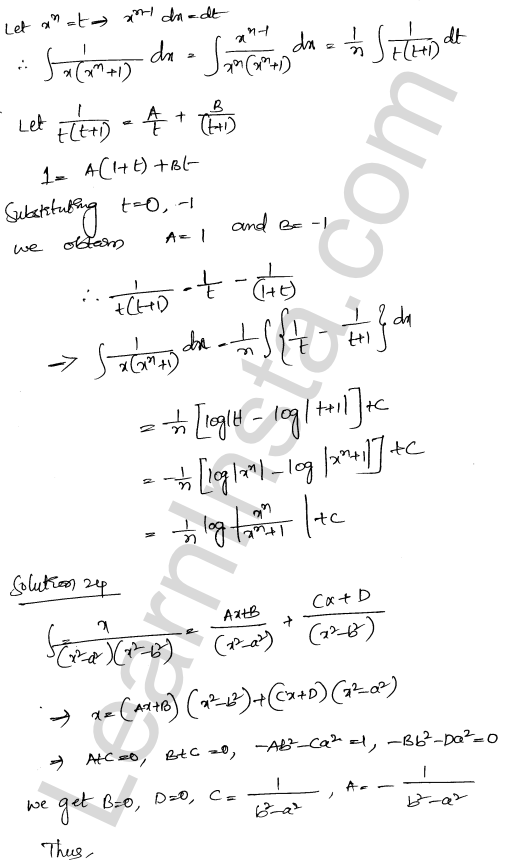 Let xⁿ = t → xⁿ⁻¹ dx = dt
∴ ∫ 1/(x(xⁿ+1)) dx = ∫ xⁿ⁻¹/(xⁿ(xⁿ+1)) dx = 1/n ∫ 1/(t(t+1)) dt
Let 1/(t(t+1)) = A/t + B/(t+1)
1 = A(1+t) + Bt
Substituting t=0, -1
we obtain A = 1 and B = -1
∴ 1/(t(t+1)) = 1/t - 1/(1+t)
→ ∫ 1/(x(xⁿ+1)) dx = 1/n ∫ {1/t - 1/(t+1)} dx
= 1/n [log|t| - log|t+1|] + C
= -1/n [log|xⁿ| - log|xⁿ+1|] + C
= 1/n log|xⁿ/(xⁿ+1)| + C
Solution 24
∫ = x/((x²-a²)(x²-b²)) = (Ax+B)/(x²-a²) + (Cx+D)/(x²-b²)
→ x = (Ax+B)(x²-b²) + (Cx+D)(x²-a²)
⇒ A+C=0, B+C=0, -Ab²-Ca²=1, -Bb²-Da²=0
we get B=0, D=0, C = 1/(b²-a²), A = -1/(b²-a²)
Thus,
LearnInsta.com